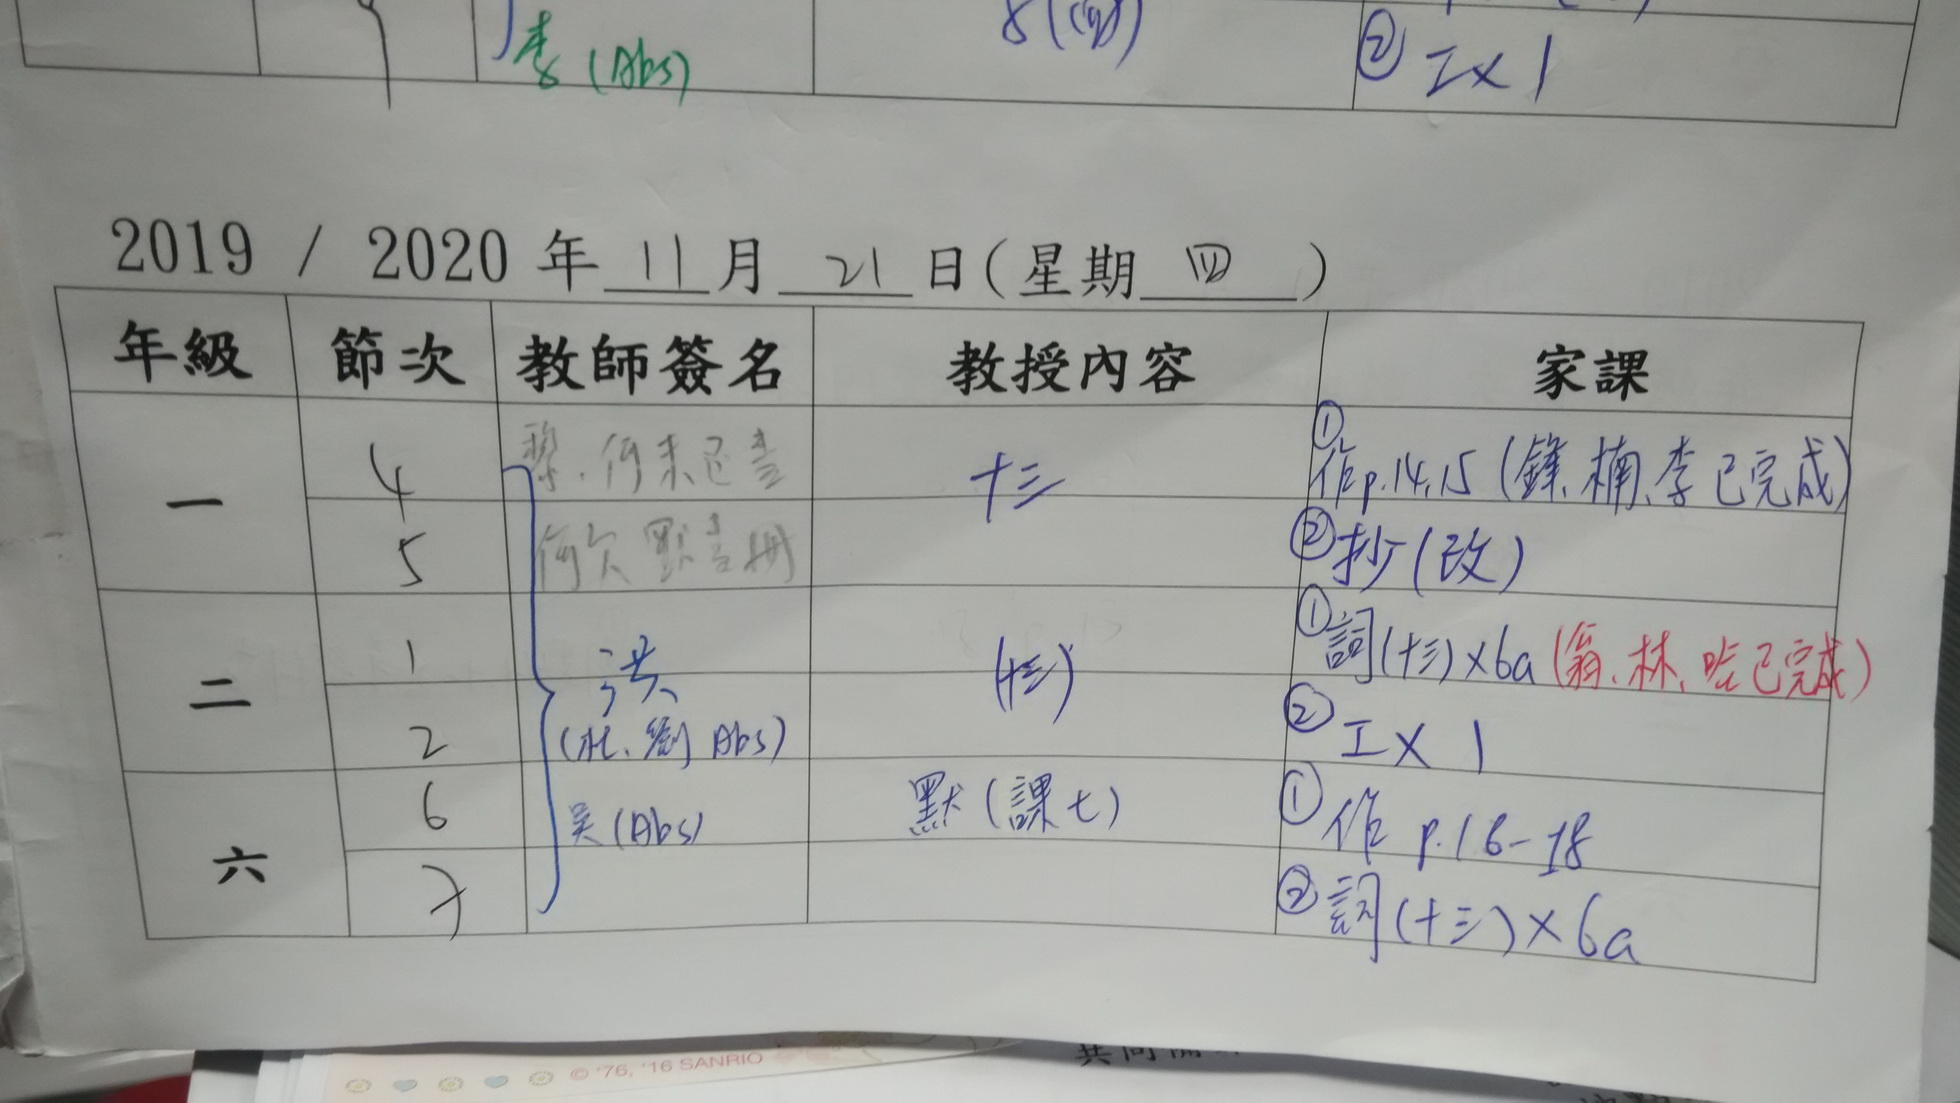 李 (Abs)
② 工 x 1
2019 / 2020 年 11 月 21 日 (星期 四 )
年級 節次 教師簽名 教授內容 家課
一 4 十三 ① 作 p.14, 15 (鋒、楠、李 已完成)
5 何欠默書冊 ② 抄 (改)
二 1 洪 (十三) ① 詞 (十三) x 6a (翁、林、 已完成)
2 (杜、劉 Abs) ② 工 x 1
六 6 吳 (Abs) 默 (課七) ① 作 p.16-18
7 ② 詞 (十三) x 6a
© '76, '16 SANRIO